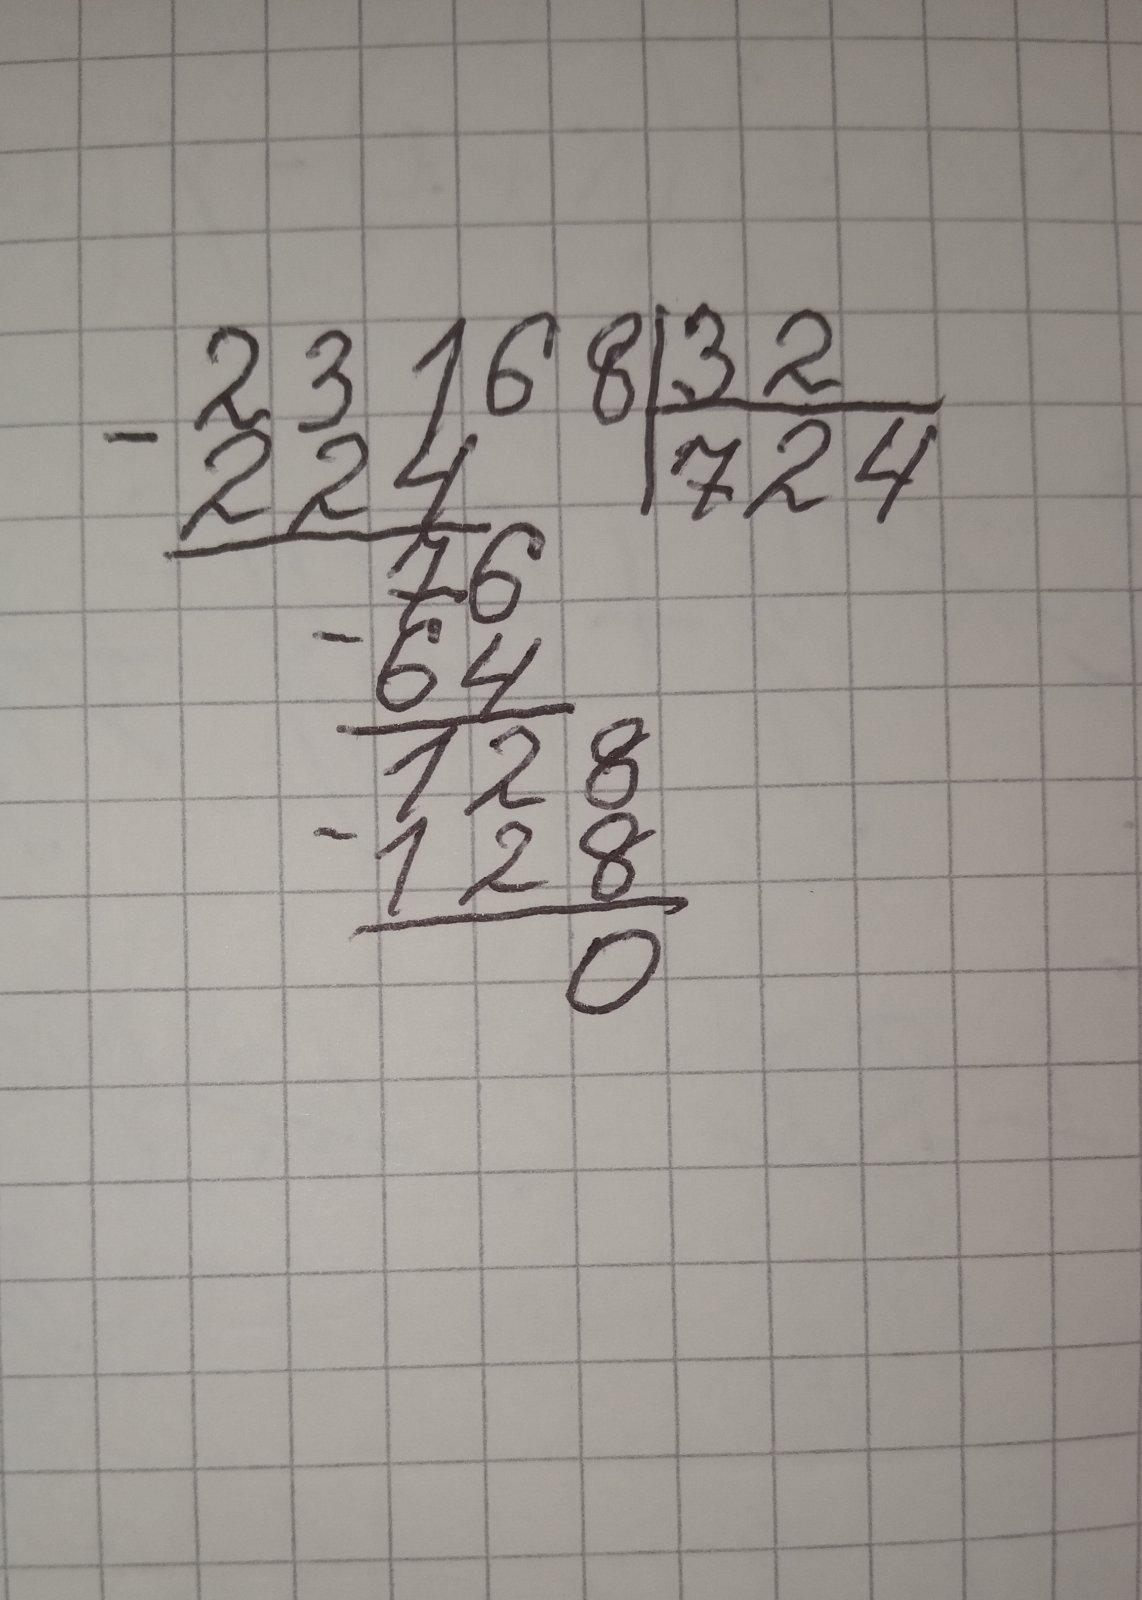 23168|32
- 224 724
76
- 64
128
- 128
0